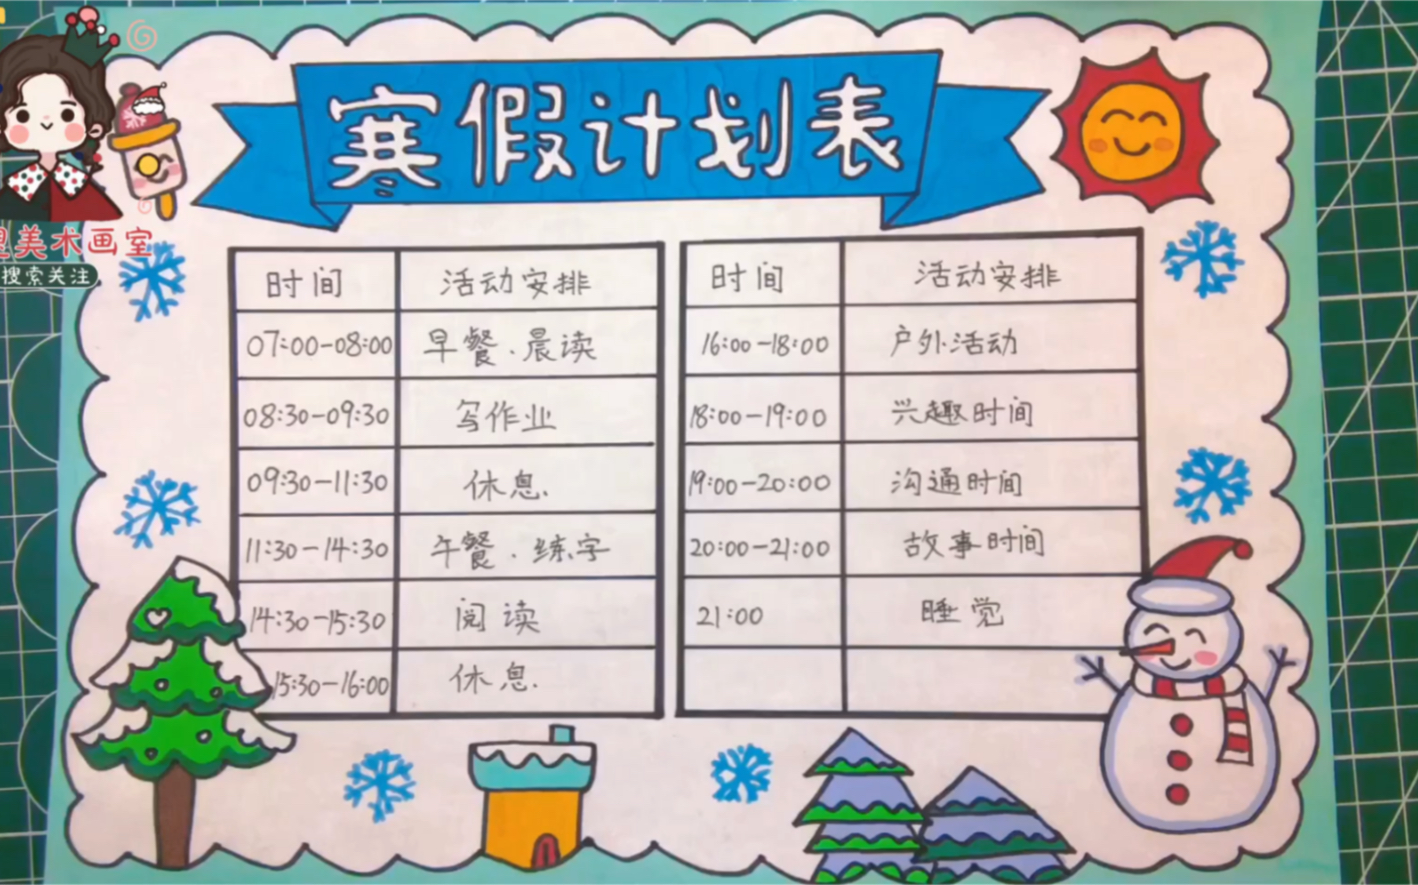 寒假计划表
美术画室
搜索关注
时间 活动安排
07:00-08:00 早餐.晨读
08:30-09:30 写作业
09:30-11:30 休息.
11:30-14:30 午餐.练字
14:30-15:30 阅读
15:30-16:00 休息.
时间 活动安排
16:00-18:00 户外活动
18:00-19:00 兴趣时间
19:00-20:00 沟通时间
20:00-21:00 故事时间
21:00 睡觉